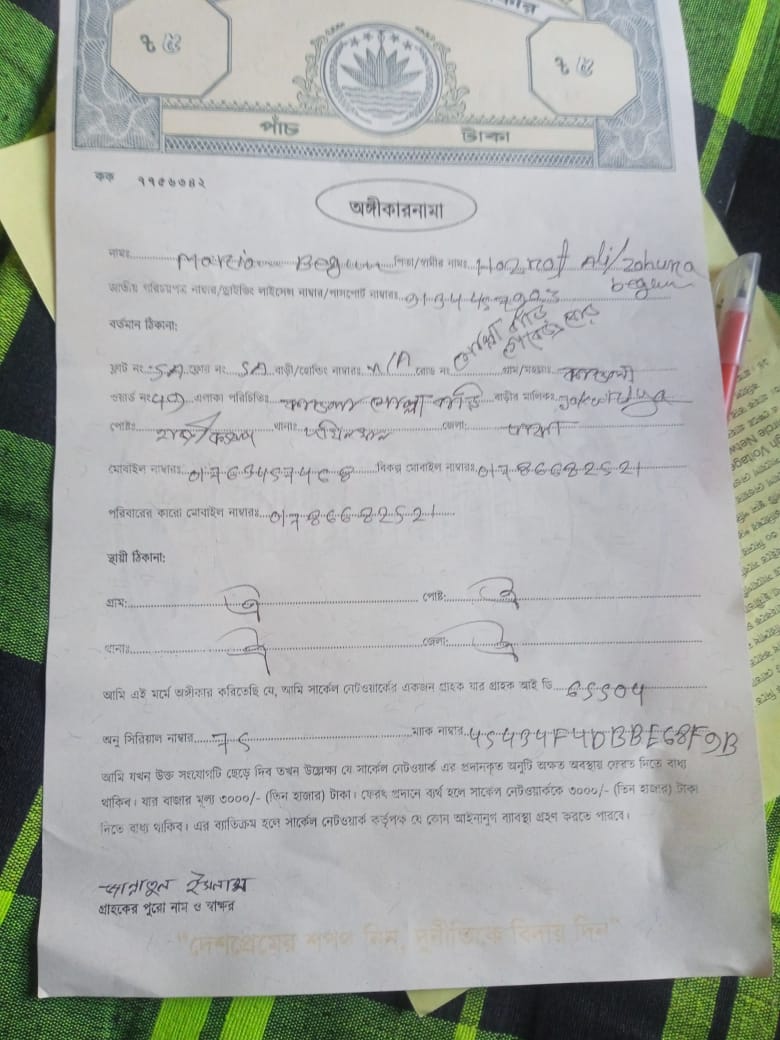 ১ ৫
১ ৫
পাঁচ টাকা
কক ৭৭৫৬৩৪২
অঙ্গীকারনামা
নামঃ Marzia Begum পিতা/স্বামীর নামঃ Hozrof Ali/Zohura begum
জাতীয় পরিচয়পত্র নাম্বার/ড্রাইভিং লাইসেন্স নাম্বার/পাসপোর্ট নাম্বারঃ
বর্তমান ঠিকানা:
ফ্লাট নং: 5A ফ্লোর নং: 5A বাড়ী/হোল্ডিং নাম্বারঃ N/A রোড নং মোল্লা বাড়ি গ্রাম/মহল্লাঃ
ওয়ার্ড নং 49 এলাকা পরিচিতিঃ মোল্লা বাড়ি বাড়ীর মালিকঃ
পোষ্টঃ থানাঃ দক্ষিনখান জেলাঃ ঢাকা
মোবাইল নাম্বারঃ বিকল্প মোবাইল নাম্বারঃ 01786682521
পরিবারের কারো মোবাইল নাম্বারঃ 01786682521
স্থায়ী ঠিকানা:
গ্রাম: ঐ পোষ্ট: ঐ
থানাঃ ঐ জেলা: ঐ
আমি এই মর্মে অঙ্গীকার করিতেছি যে, আমি সার্কেল নেটওয়ার্কের একজন গ্রাহক যার গ্রাহক আই ডি 65504
অনু সিরিয়াল নাম্বার 75 ম্যাক নাম্বার 454B4F4DBBE68F9B
আমি যখন উক্ত সংযোগটি ছেড়ে দিব তখন উল্লেক্ষ্য যে সার্কেল নেটওয়ার্ক এর প্রদানকৃত অনুটি অক্ষত অবস্থায় ফেরত দিতে বাধ্য
থাকিব। যার বাজার মূল্য ৩০০০/- (তিন হাজার) টাকা। ফেরৎ প্রদানে ব্যর্থ হলে সার্কেল নেটওয়ার্ককে ৩০০০/- (তিন হাজার) টাকা
দিতে বাধ্য থাকিব। এর ব্যতিক্রম হলে সার্কেল নেটওয়ার্ক কর্তৃপক্ষ যে কোন আইনানুগ ব্যবস্থা গ্রহণ করতে পারবে।
জান্নাতুল ইসলাম
গ্রাহকের পুরো নাম ও স্বাক্ষর
"দেশপ্রেমের শপথ নিন, দুর্নীতিকে বিদায় দিন"